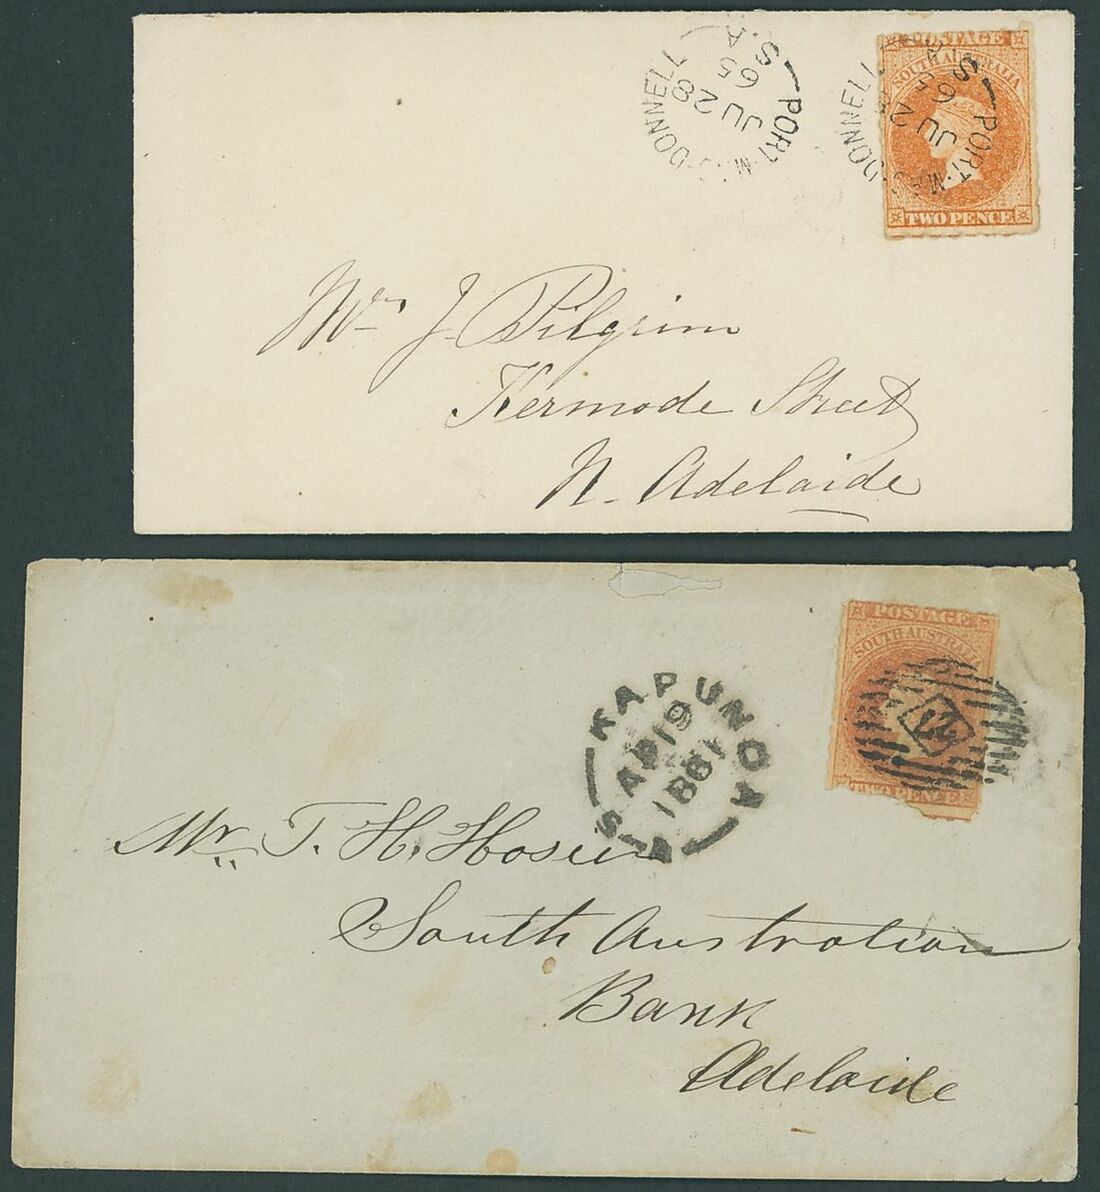 PORT·MAC·DONNELL
S.A
JU 28
65
POSTAGE
SOUTH AUSTRALIA
TWO PENCE
PORT·MAC·DONNELL
S.A
JU 2
65
Mr J. Pilgrim
Kermode Street
N. Adelaide
POSTAGE
SOUTH AUSTRALIA
TWO PENCE
KAPUNDA
AP 19
1861
S A
Mr. T. H. Hosier
South Australian
Bank
Adelaide